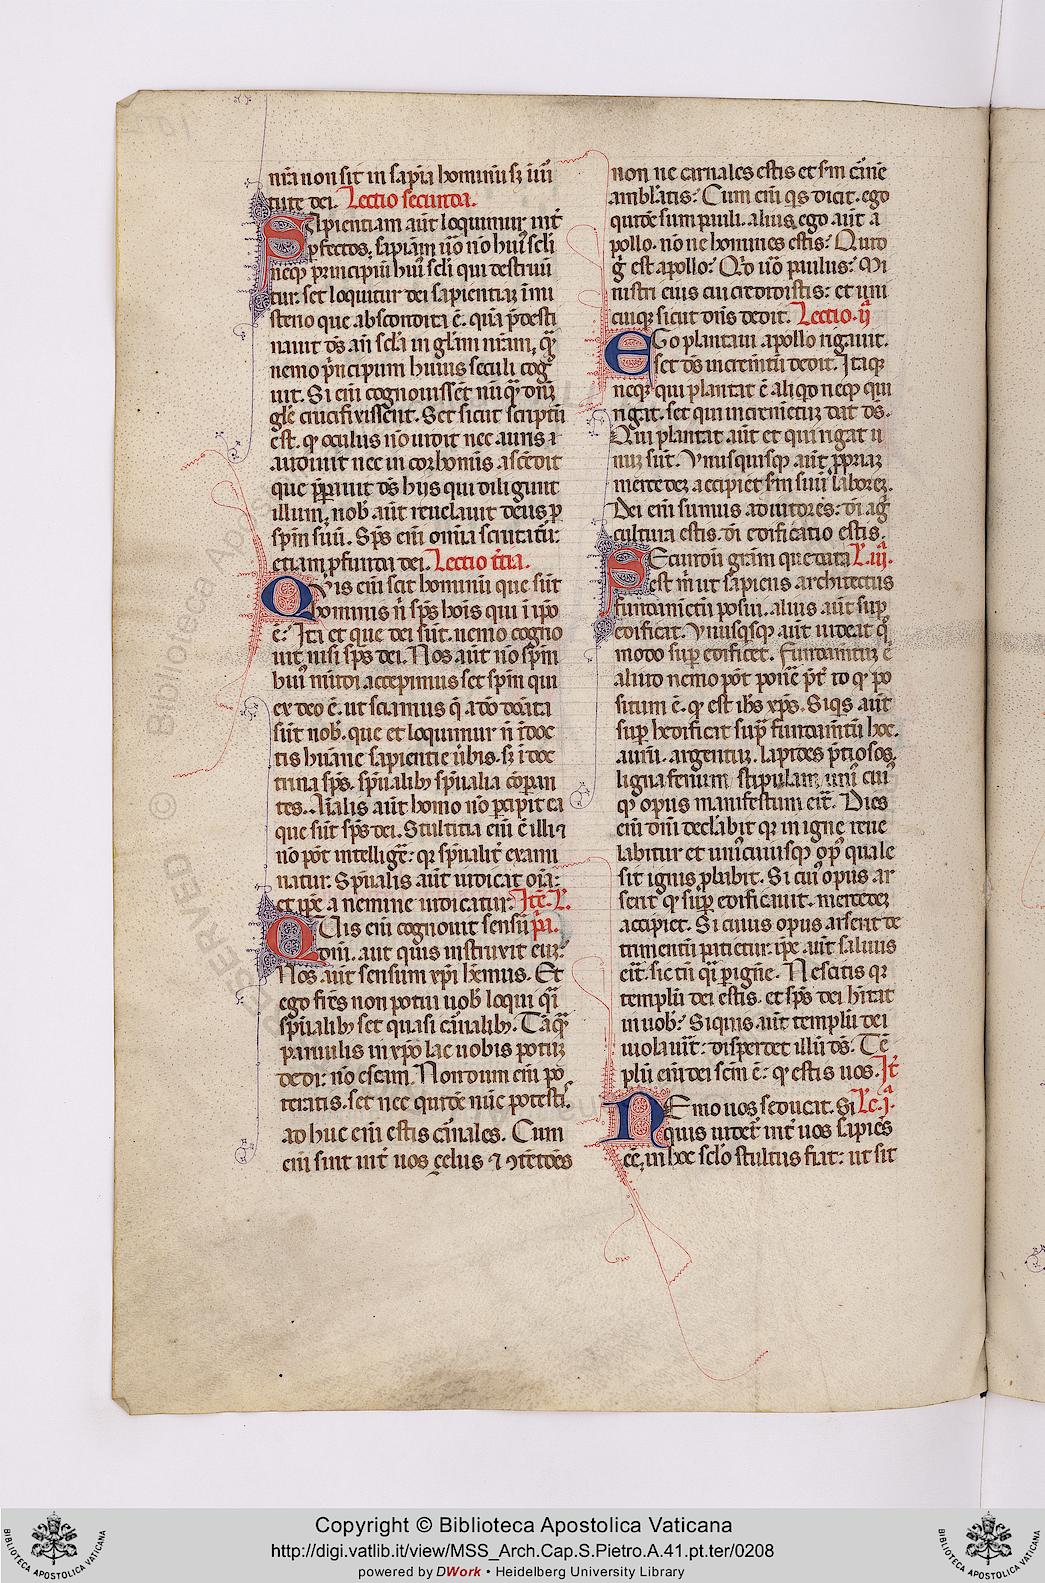 nr̄a non sit in sapīa hominū sꝫ in ūi
tute dei. Lectio secunda.
Sapientiam aūt loquimur int̄
pfectos. sapiām ūo nō huiꝰ scl̄i
neqꝫ principiū huiꝰ scl̄i qui destruū
tur. set loquitur dei sapientiaꝫ ī mi
sterio que abscondita ē. quā p̄desti
nauit dꝰ an̄ scl̄a in gl̄am nr̄am. qꝫ̄
nemo p̄ncipum huius seculi cog
uit. Si eī cognouissēt nūqꝫ̄ dn̄ꝫ
gl̄e crucifixissent. Set sicut sc̄iptū
est. qꝛ oculus nō uidit nec auris a
audiuit nec in cor homīs ascēdit
que p̄parauit dꝰ hiis qui diligunt
illum. nob̄ aūt reuelauit deus ꝑ
sp̄m suū. Sp̄s eī om̄ia scrutatū:
etiam ꝓfunda dei. Lectio t̄tia.
Quis eī scit hominū que sūt
hominis n̄ sp̄s hoīs qui ī ipo
ē: Ita et que dei sūt. nemo cogno
uit nisi sp̄s dei. Nos aūt nō sp̄m
huiꝰ mūdi accepimus set sp̄m qui
ex deo ē. ut sciamus q̄ a dō donata
sūt nob̄. que et loquimur n̄ ī doc
tis hūane sapientie ūbis. sꝫ ī doc
trina sp̄s. sp̄ualibꝫ sp̄ualia cōparan
tes. Aīalis aūt homo nō ꝑcipit ea
que sūt sp̄s dei. Stulticia eī ē illi ⁊
nō pōt intelligē: qꝛ sp̄ualit̄ exami
natur. Sp̄ualis aūt iudicat oīa:
et ip̄e a nemine iudicatur. Itē. L̄.
Quis eī cognouit sensū p̄a.
dn̄i. aut quis instruxit eūꝫ:
Nos. aūt sensum xp̄i h̄emus. Et
ego fr̄es non potui uob̄ loqui q̄i
sp̄ualibꝫ set quasi cānalibꝫ. Tāqꝫ̄
paruulis in xp̄o lac uobis potuꝫ
dedi: nō escam. Nondum eī po
teratis. set nec quidē nūc potestꝭ.
ad huc eī estis cānales. Cum
eī sint int̄ uos çelus ⁊ ꝯtētiōēs
non ne carnales estis et sm̄ oīnē
amblatis: Cum eī qs dicit. ego
quidē sum pauli. alius ego aūt a
pollo. nō ne homines estis: Quid
g̊ est apollo: Qꝺ ūo paulus: Mi
nistri eius cui credidistis: et uni
cuiqꝫ sicut dn̄s dedit. Lectio. ij
Ego plantaui apollo rigauit.
set dꝰ incremtū dedit. Itaqꝫ
neqꝫ qui plantat ē aliqd neqꝫ qui
rigat. set qui incremētuꝫ dat dꝰ.
Qui plantat aūt et qui rigat u
nuꝫ sūt. Vnusquisqꝫ aūt ꝓpriaꝫ
mercedeꝫ accipiet sm̄ suū laboreꝫ.
Dei eī sumus adiutores: dī ag̊
cultura estis. dī edificatio estis.
Secundū grām que data L̄. iij.
est m̄ ut sapiens architectus
fundamētū posui. alius aūt suꝑ
edificat. Vnusqsqꝫ aūt uideat q̊
modo suꝑ edificet. Fundamētuꝫ ē
aliud nemo pōt ponē p̄t̄ id qꝺ po
situm ē. qꝺ est ih̄s xp̄s. Siqs aūt
suꝑ hedificat suꝑ fundamētū hoc.
aurū. argentuꝫ. lapides p̄tiosos.
ligna fenum stipulam. uniꝰ cuiꝰ
qꝫ opus manifestum erīt. Dies
eī dn̄i declabit qꝛ in igne reue
labitur et uniꝰcuiusqꝫ opꝰ quale
sit ignis ꝓbabit. Si cuiꝰ opus ar
serit qꝺ suꝑ edificauit. mercedeꝫ
accipiet. Si cuius opus arserit de
trimentū patietur. ip̄e aūt saluus
erīt. sic tn̄ q̄i ꝑ igne. Nescitis qꝛ
templū dei estis. et sp̄s dei hītat
in uob̄: Siquis aūt templū dei
uiolauīt: disperdet illū dꝰ. Tē
plū eī dei scm̄ ē: qꝺ estis uos. It̄
Nemo uos seducat. Si Lc̄. jᵃ.
quis uidet̄ int̄ uos sapiēs
eē. in hoc scl̄o stultus fiat: ut sit
Copyright © Biblioteca Apostolica Vaticana
http://digi.vatlib.it/view/MSS_Arch.Cap.S.Pietro.A.41.pt.ter/0208
powered by DWork • Heidelberg University Library
BIBLIOTECA APOSTOLICA VATICANA
BIBLIOTECA APOSTOLICA VATICANA